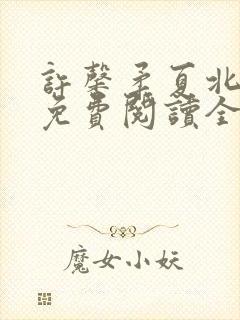 許馨矛夏北
免費閱讀全
魔女小妖